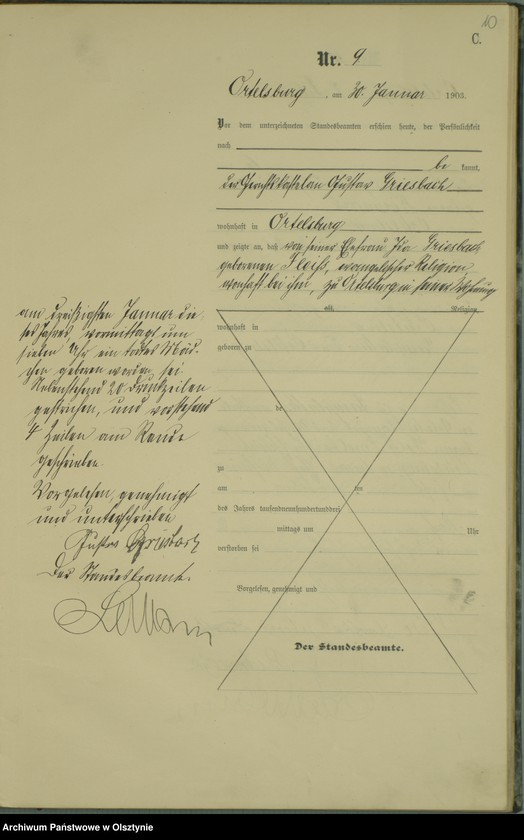 10
C.
Nr. 9
Ortelsburg, am 30. Januar 1903.
Vor dem unterzeichneten Standesbeamten erschien heute, der Persönlichkeit
nach
be kannt,
der Gerichtskastellan Gustav Griesbach
wohnhaft in Ortelsburg
und zeigte an, daß von seiner Ehefrau Griesbach
geborenen evangelischer Religion,
wohnhaft bei ihm, zu Ortelsburg in seiner Wohnung
alt, Religion,
wohnhaft in
geboren zu
de
zu
am ten
des Jahres tausendneunhundertunddrei
mittags um Uhr
verstorben sei
Vorgelesen, genehmigt und
Der Standesbeamte.
am dreißigsten Januar die-
ses Jahres, vormittags um
sieben Uhr ein todtes Mäd-
chen geboren worden sei
Nebenstehend 20 Druckzeilen
gestrichen, und vorstehend
4 Zeilen am Rande
geschrieben.
Vorgelesen, genehmigt
und unterschrieben
Gustav Griesbach
Der Standesbeamte.
Archiwum Państwowe w Olsztynie